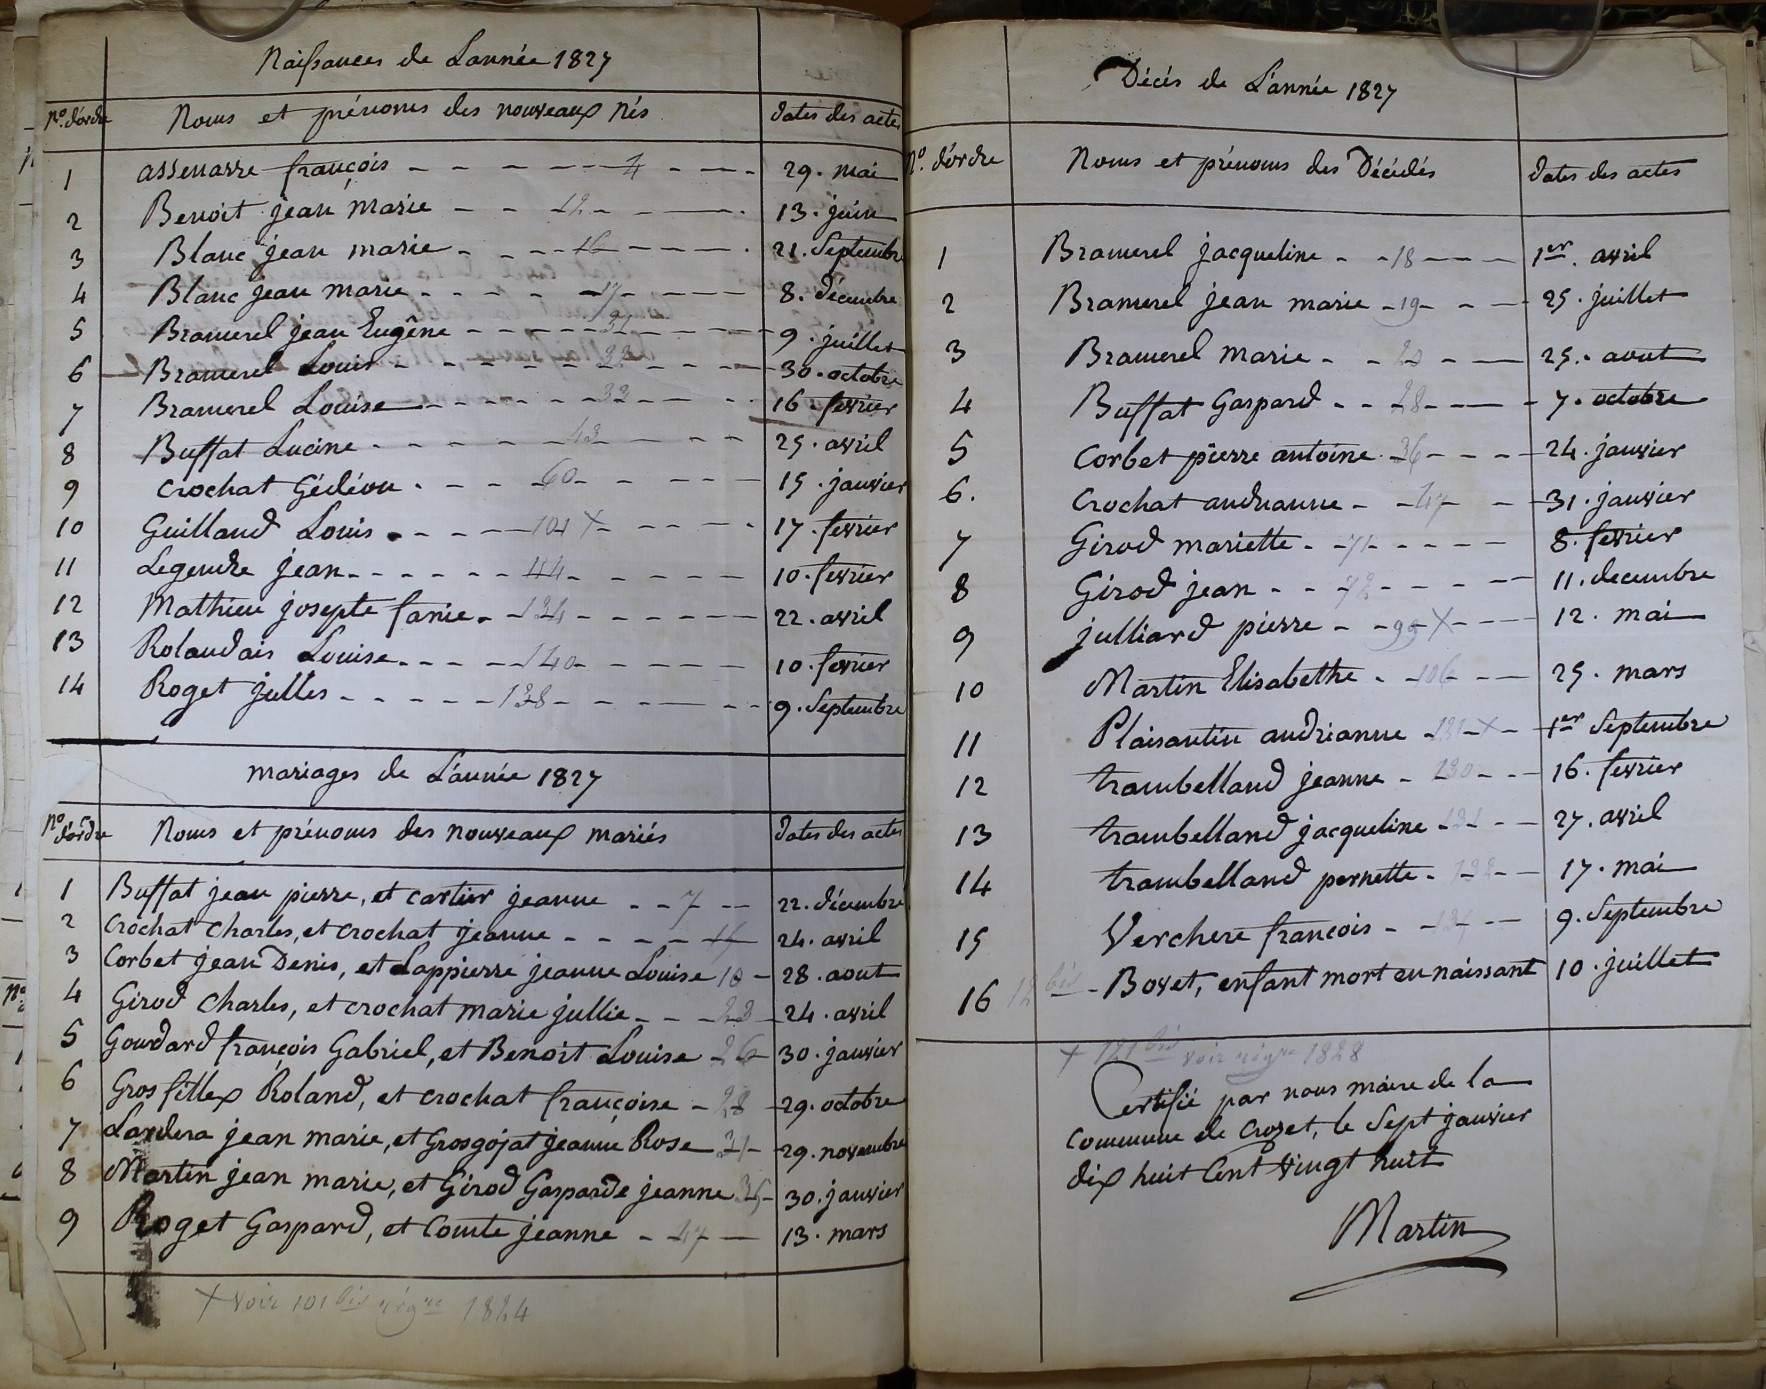 Naissances de L'année 1827
No. d'ordre Noms et prénoms des nouveaux Nés dates des actes
1 assenarre françois 4 29. mai
2 Benoit jean marie 12 13. juin
3 Blanc jean marie 16 21. Septembre
4 Blanc jean marie 17 8. décembre
5 Bramerel jean Eugêne 31 9. juillet
6 Bramerel Louis 30. octobre
7 Bramerel Louise 32 16. fevrier
8 Buffat Lucine 43 25. avril
9 Crochat Gédéon 60 15. janvier
10 Guilland Louis 101 X 17. fevrier
11 Legendre jean 10. fevrier
12 Mathieu josepte fanie 134 22. avril
13 Rolandais Louise 140 10. fevrier
14 Roget julles 138 9. Septembre
mariages de L'année 1827
No d'ordre Noms et prénoms des nouveaux mariés dates des actes
1 Buffat jean pierre, et cartier jeanne 7 22. décembre
2 Crochat Charles, et crochat jeanne 24. avril
3 Corbet jean Denis, et Lappierre jeanne Louise 18 28. aout
4 Girod Charles, et crochat marie jullie 23 24. avril
5 Goudard françois Gabriel, et Benoit Louise 26 30. janvier
6 Gros fillex Roland, et crochat françoise 28 29. octobre
7 Landera jean marie, et Grosgojat jeanne Rose 31 29. novembre
8 Martin jean marie, et Girod Gasparde jeanne 35 30. janvier
9 Roget Gaspard, et Comte jeanne 47 13. mars
X voir 101 bis régre 1824
Décés de L'année 1827
No. d'ordre Noms et prénoms des Décédés dates des actes
1 Bramerel jacqueline 18 1er. avril
2 Bramerel jean marie 19 25. juillet
3 Bramerel marie 20 25. aout
4 Buffat Gaspard 28 7. octobre
5 Corbet pierre antoine 36 24. janvier
6. Crochat andrianne 47 31. janvier
7 Girod mariette 71 8. fevrier
8 Girod jean 72 11. decembre
9 julliard pierre 99 X 12. mai
10 Martin Elisabethe 106 25. mars
11 Plaisantin andrianne 121 X 1er Septembre
12 trambelland jeanne 130 16. fevrier
13 trambelland jacqueline 131 27. avril
14 trambelland pernette 132 17. mai
15 Verchere françois 9. Septembre
16 12 bis Bovet, enfant mort en naissant 10. juillet
X 121 bis voir régre 1828
Certifié par nous maire de la
commune de Crozet, le Sept janvier
dix huit Cent Vingt huit
Martin